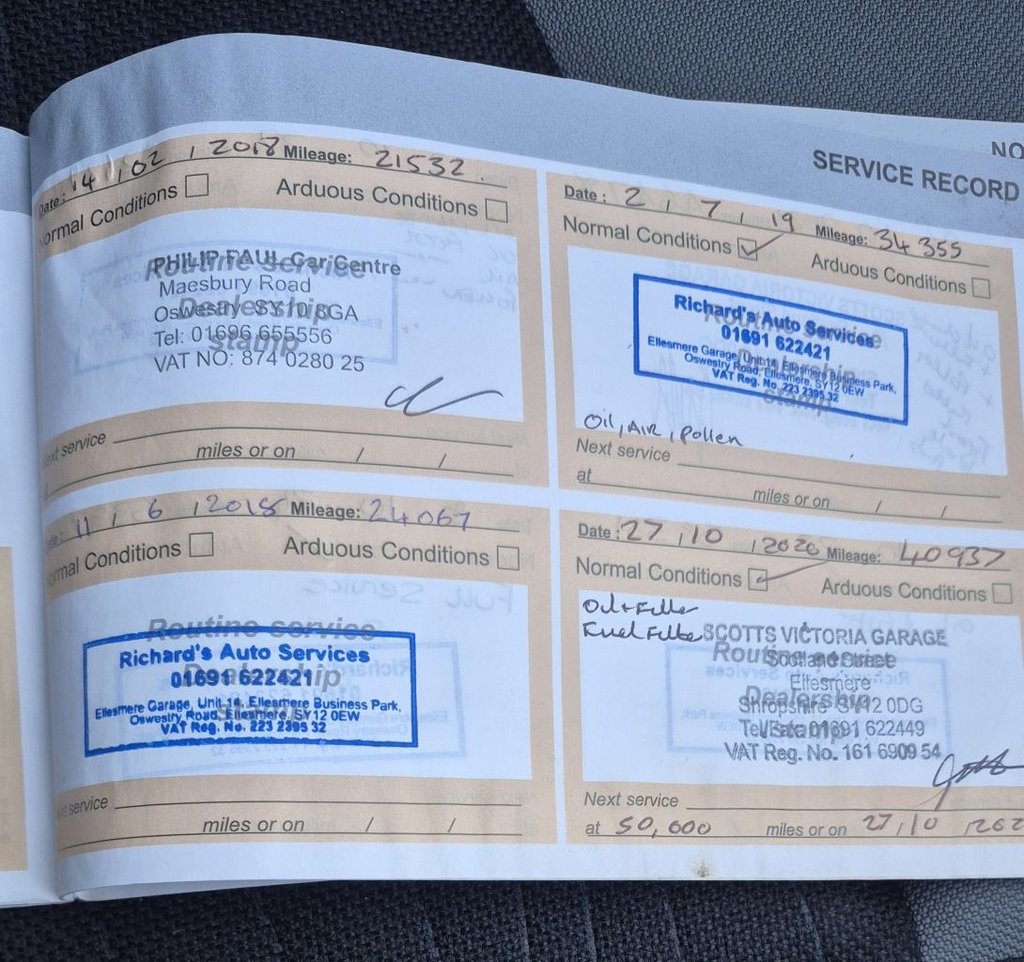 NO
SERVICE RECORD
Date: 14 / 02 / 2018 Mileage: 21532
Normal Conditions Arduous Conditions
Routine service
Dealership
stamp
PHILIP PAUL Car Centre
Maesbury Road
Oswestry SY10 8GA
Tel: 01696 655556
VAT NO: 874 0280 25
Next service
at miles or on / /
Date: 11 / 6 / 2018 Mileage: 24067
Normal Conditions Arduous Conditions
Routine service
Dealership
Richard's Auto Services
01691 622421
Ellesmere Garage, Unit 14, Ellesmere Business Park,
Oswestry Road, Ellesmere, SY12 0EW
VAT Reg. No. 223 2395 32
Next service
miles or on / /
Date: 2 / 7 / 19 Mileage: 34355
Normal Conditions Arduous Conditions
Routine service
Dealership
stamp
Richard's Auto Services
01691 622421
Ellesmere Garage, Unit 14, Ellesmere Business Park,
Oswestry Road, Ellesmere, SY12 0EW
VAT Reg. No. 223 2395 32
Oil, AIR, Pollen
Next service
at miles or on / /
Date: 27 / 10 / 2020 Mileage: 40937
Normal Conditions Arduous Conditions
Oil + Filter
Fuel Filter
Routine service
Dealership
stamp
SCOTTS VICTORIA GARAGE
Scotland Street
Ellesmere
Shropshire SY12 0DG
Tel/ 01691 622449
VAT Reg. No. 161 6909 54
Next service
at 50,000 miles or on 27 / 10 / 202